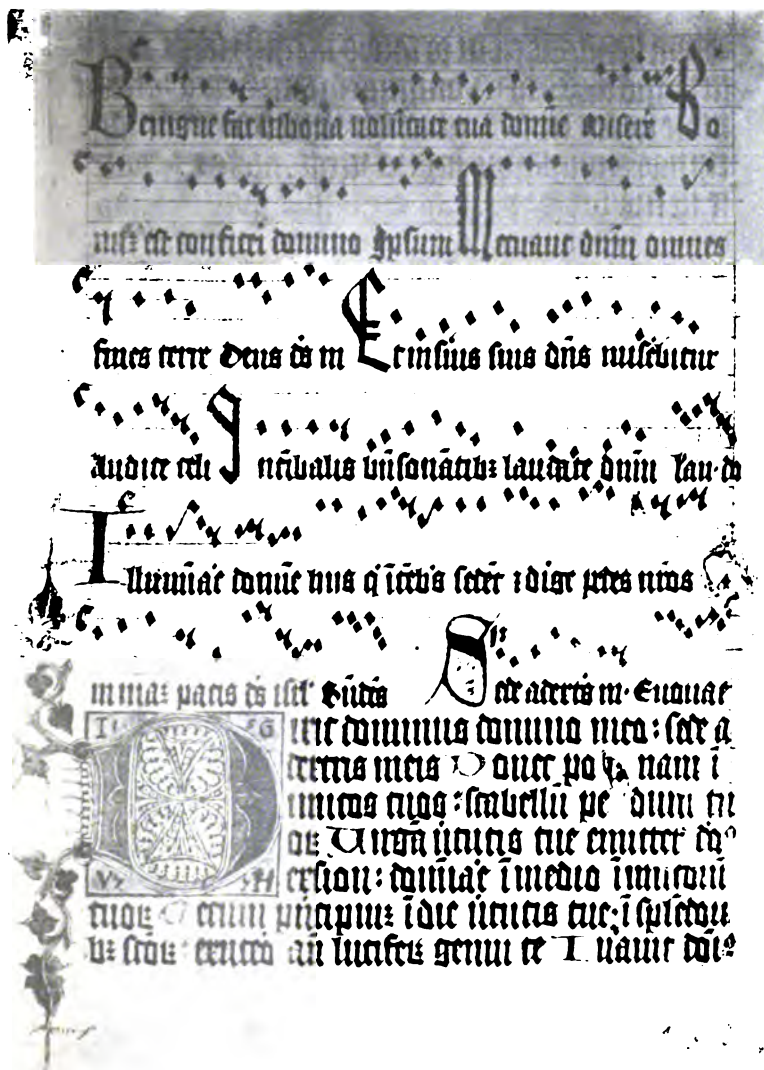 Benigne fac in bona volūtate tua domīe Misere Bo
nūʒ est confiteri domino Ipsum Metuant dn̄m omnes
fines terre Deus ds m Et in suis dn̄s
audite celi In bn̄ sonātibʒ laudate dn̄m Lau do
Illumīa'e domīe hiis q' ī seder ⁊ dirige pedes nr̄os
in viaʒ pacis ds isrl' Sede a dextris m. Euouae
Dixit dominus domino meo : sede a
dextris meis Donec ponam ī
imicos tuos : scabellū pedum tu
oꝝ Virgā v̄tutis tue emittet do
ex sion : domīa'e ī medio īimicoꝝ
tuoꝝ Tecum pn̄cipiuʒ ī die v̄tutis tue ; ī splēdori
bʒ scōꝝ ex utero an̄ luciferꝝ genui te Iurauit dn̄s